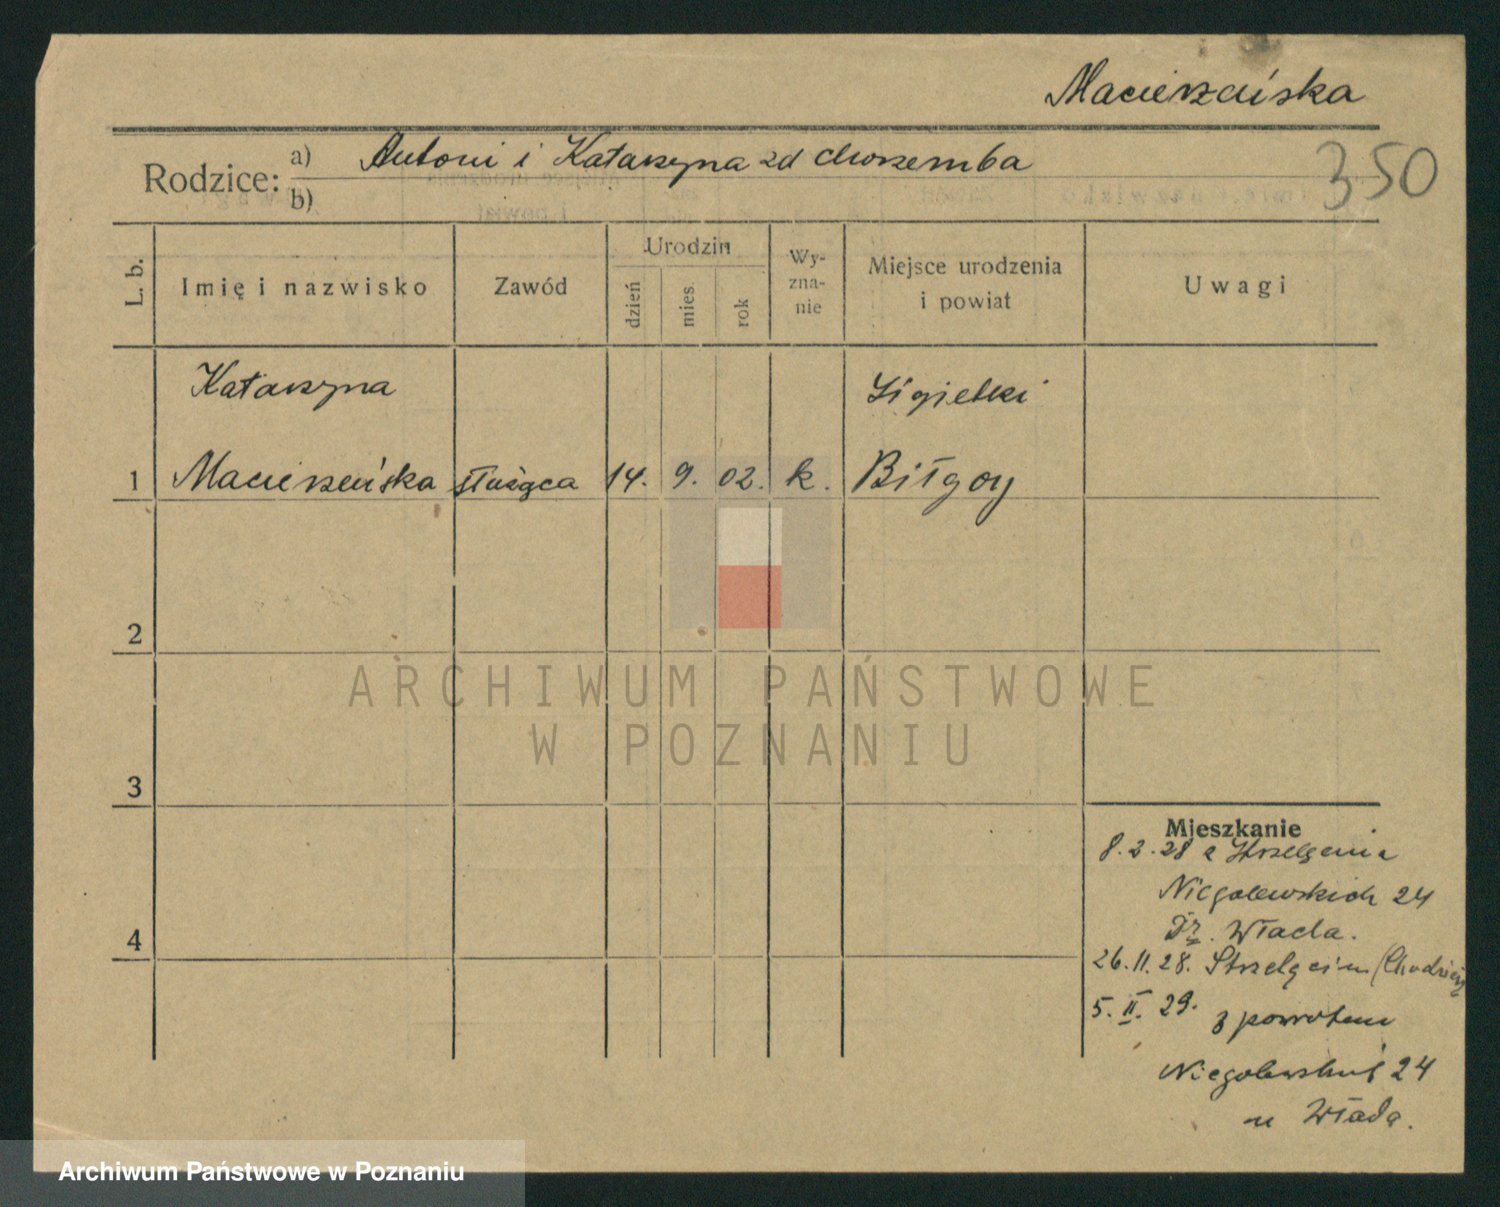 Macierzeńska
350
Rodzice: a) Antoni i Katarzyna zd Chorzemba
b)
L. b.
Imię i nazwisko
Zawód
Urodzin
dzień
mies.
rok
Wy-
zna-
nie
Miejsce urodzenia
i powiat
Uwagi
Katarzyna
1 Macierzeńska służąca 14. 9. 02. k. Biłgoy
2
3
4
Mieszkanie
8.2.28 z Strzelęcina
Niegolewskich 24
Włada.
26.11.28. Strzelęcin (Chodzież
5. II. 29. z powrotem
24
u Włada.
ARCHIWUM PAŃSTWOWE
W POZNANIU
Archiwum Państwowe w Poznaniu